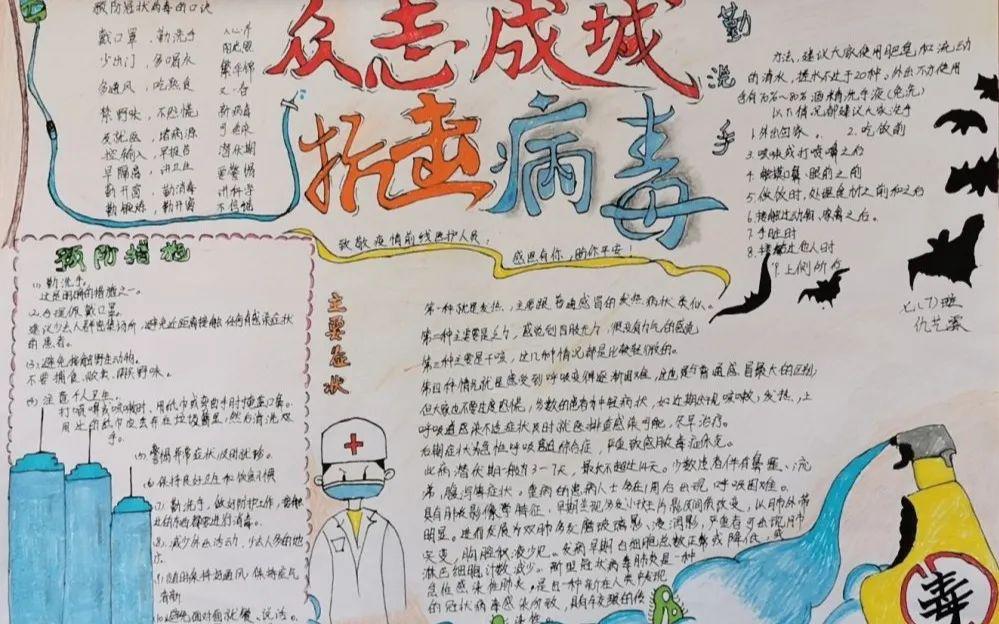 预防冠状病毒的口诀
戴口罩，勤洗手
少出门，多喝水
多通风，吃熟食
禁野味，不恐慌
友就医，堵病源
控输入，早报告
早隔离，讲卫生
勤开窗，勤消毒
勤锻炼，勤开窗
又一春
新病毒
可传染
潜伏期
要警惕
讲科学
不信谣
众志成城
抗击病毒
致敬疫情前线医护人员：
感恩有你，盼你平安！
勤洗手
方法，建议大家使用肥皂，和流动
的清水，搓水不少于20秒，外出不方便用
含有70%~80%酒精洗手液（免洗）
以下情况都建议大家洗手
1.外出回家。 2.吃饭前
3.咳嗽或打喷嚏之后
4.触摸口鼻眼前之前
5.做饭时，处理食物之前和之后
6.接触过动物、尿布之后。
7.手脏时
8.接触过他人时
9.上厕所后
七（7）班
预防措施
(1)勤洗手，
这是明确的措施之一。
(2)合理佩戴口罩。
建议少去人群密集场所，避免近距离接触任何有感染症状
的患者。
(3)避免接触野生动物。
不要捕食、
(4)注意个人卫生。
打喷嚏或咳嗽时，用纸巾或弯曲手肘掩盖口鼻。
用过的纸巾放丢弃在垃圾桶里，然后清洗双
手。
(5)警惕异常症状及时就诊。
(6)保持良好卫生和饮食习惯
(7)勤洗手，做好防护工作，
(8)减少外出活动，少去人多的地
方。
(9)随时保持勤通风，保持空气
清新
(10)避免面对面就餐、说话。
主要症状
第一种就是发热，主要跟普通感冒的发热病状类似。
第二种主要是乏力，感觉到四肢无力，很没有力气的感觉
第三种主要是干咳，这几种情况都是比较轻微的。
第四种情况就是感受到呼吸变得逐渐困难，这也是与普通感冒最大的区别，
但大家也不要过度恐慌，多数的患者有中轻病状，如近期出现咳嗽、发热、上
呼吸道感染不适症状及时就医排查感染可能，尽早治疗。
后期症状为急性呼吸窘迫综合症，严重致感脓毒症休克。
此病潜伏期一般为3一7天，最长不超过14天。少数患者伴有鼻塞、流
涕，腹泻等症状，重病的患病人士多在1周后出现，呼吸困难。
具有肺炎影像学特征，早期呈现多发小斑片影及间质改变，以肺外带
明显。进而发展为双肺多发磨玻璃影、浸润影，严重者可出现肺
实变，胸腔积液少见。发病早期白细胞总数正常或降低，或
淋巴细胞计数减少。新型冠状病毒肺炎是一种
急性感染性肺炎，是由一种新在人类中发现
的冠状病毒感染所致，具有较强的传
染性。
毒